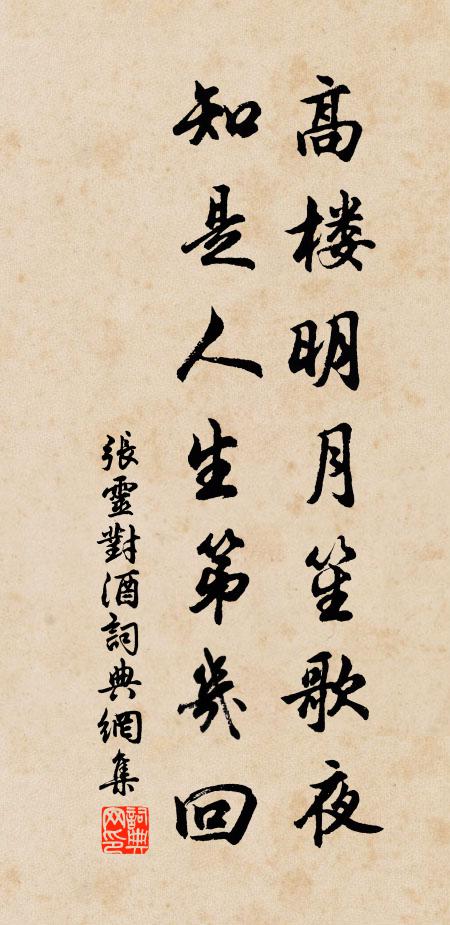 高楼明月笙歌夜
知是人生第幾回
張靈對酒詞典網集
詞典網印